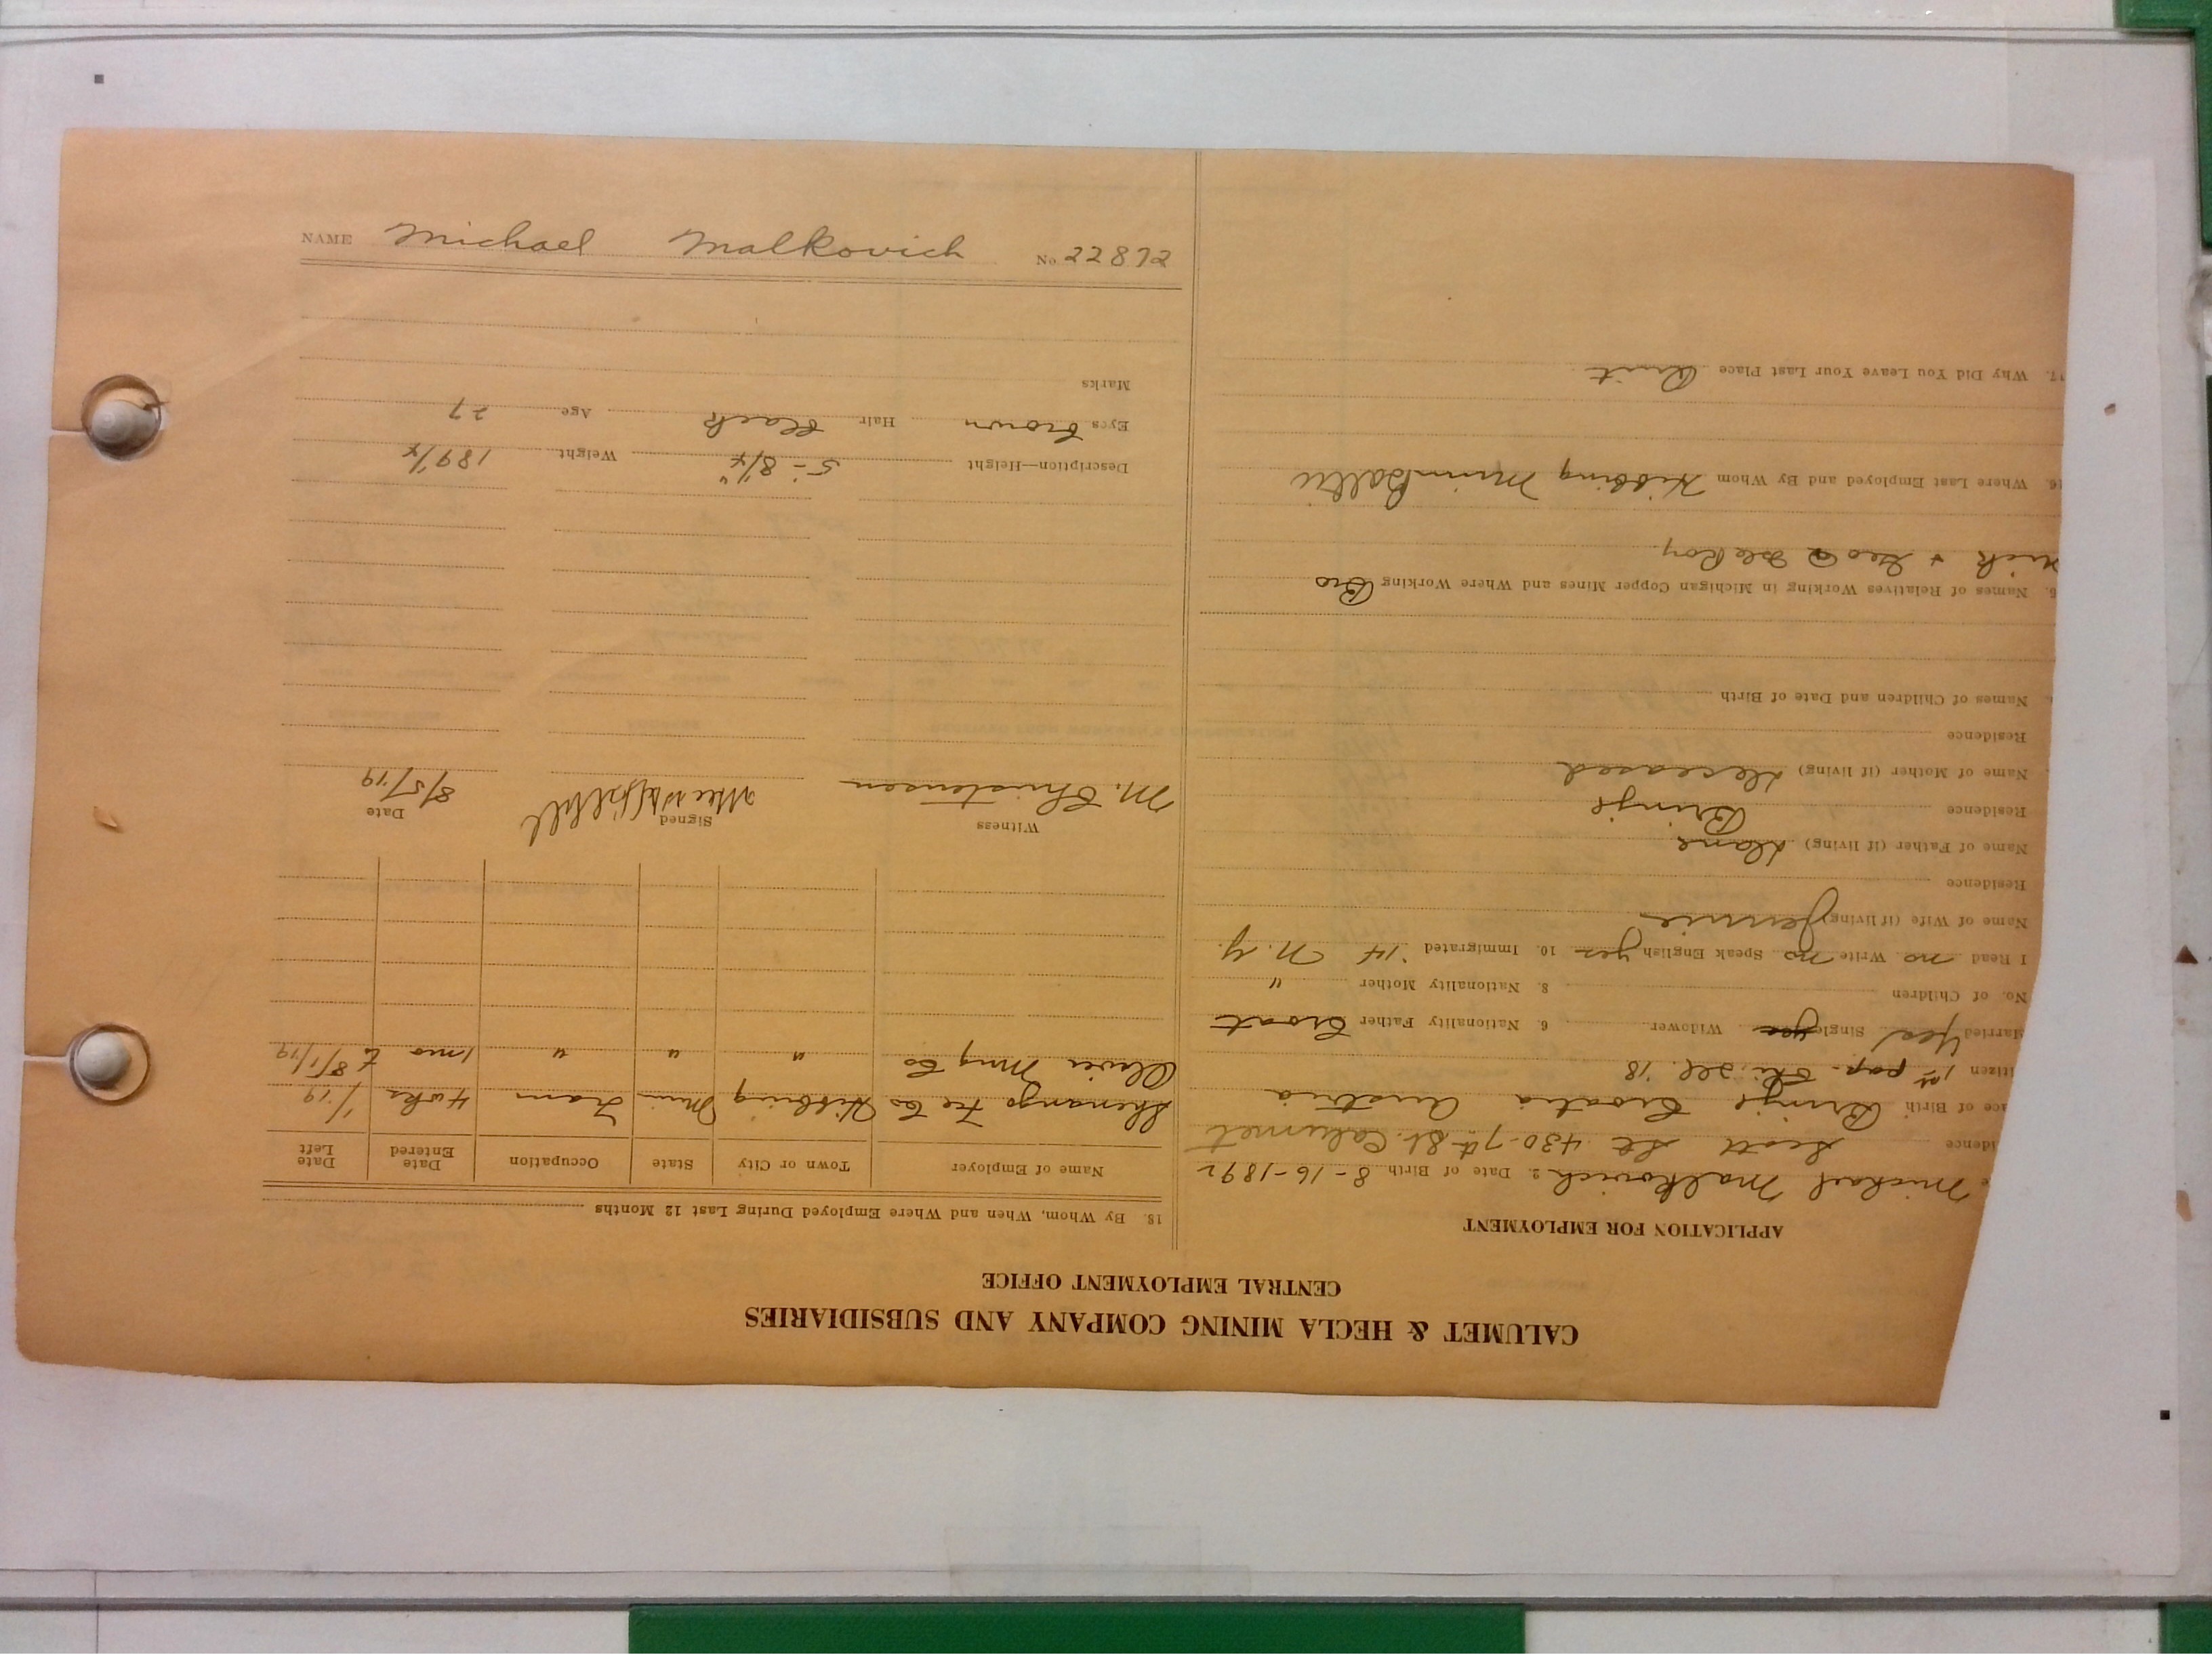 CALUMET & HECLA MINING COMPANY AND SUBSIDIARIES
CENTRAL EMPLOYMENT OFFICE
APPLICATION FOR EMPLOYMENT
e Michael Malkovich 2. Date of Birth 8-16-1892
idence Scott St 430-7th St. Calumet
ace of Birth Brinje Croatia Austria
itizen 1st pap. '18
Married Yes Single yes Widower 6. Nationality Father Croat
No. of Children 8. Nationality Mother "
I Read no Write no Speak English yes 10. Immigrated '14 N.Y.
Name of Wife (if living) Jennie
Residence
Name of Father (if living) Dane
Residence Brinje
Name of Mother (if living) Deceased
Residence
Names of Children and Date of Birth
5. Names of Relatives Working in Michigan Copper Mines and Where Working Bro
Nick + Geo @ LeRoy
16. Where Last Employed and By Whom Hibbing Minn Baltic
17. Why Did You Leave Your Last Place Quit
18. By Whom, When and Where Employed During Last 12 Months
Name of Employer Town or City State Occupation Date Entered Date Left
Shenango Fce Co Hibbing Minn Tram 4 wks 1/'19
Oliver Mng Co " " " 1 mo to 8/1/19
Witness Signed Date
M. Christensen 8/5/19
Description—Height 5'-8 1/4" Weight 189 1/4
Eyes brown Hair black Age 27
Marks
NAME Michael Malkovich No 22872